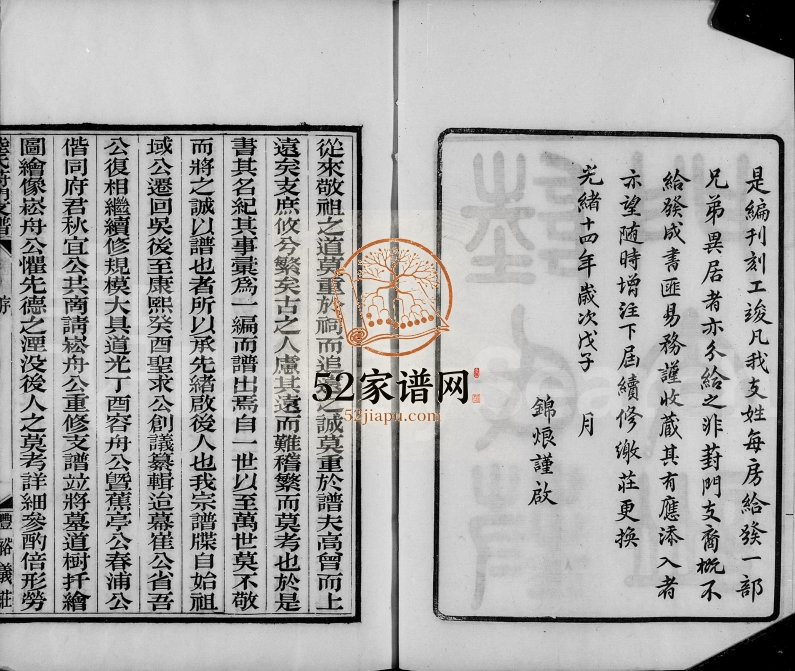 是編刊刻工竣凡我支姓每房給發一部
兄弟異居者亦分給之非葑門支裔概不
給發成書匪易務謹收藏其有應添入者
亦望随時增注下屆續修繳莊更換
光緒十四年歲次戊子 月
錦烺謹啟
從來敬祖之道莫重於祠而追遠之誠莫重於譜夫高曾而上
遠矣支庶攸分繁矣古之人慮其遠而難稽繁而莫考也於是
書其名紀其事彙爲一編而譜出焉自一世以至萬世莫不敬
而將之誠以譜也者所以承先緒啟後人也我宗譜牒自始祖
域公遷回吳後至康熙癸酉聖求公創議纂輯迨幕崔公省吾
公復相繼續修規模大具道光丁酉容舟公曁蕉亭公春浦公
偕同府君秋宜公共商請崧舟公重修支譜竝將墓道樹扦繪
圖繪像崧舟公懼先德之湮没後人之莫考詳細參酌倍形勞
陸氏葑門支譜
序
豐裕義莊
52家谱网
52jiapu.com